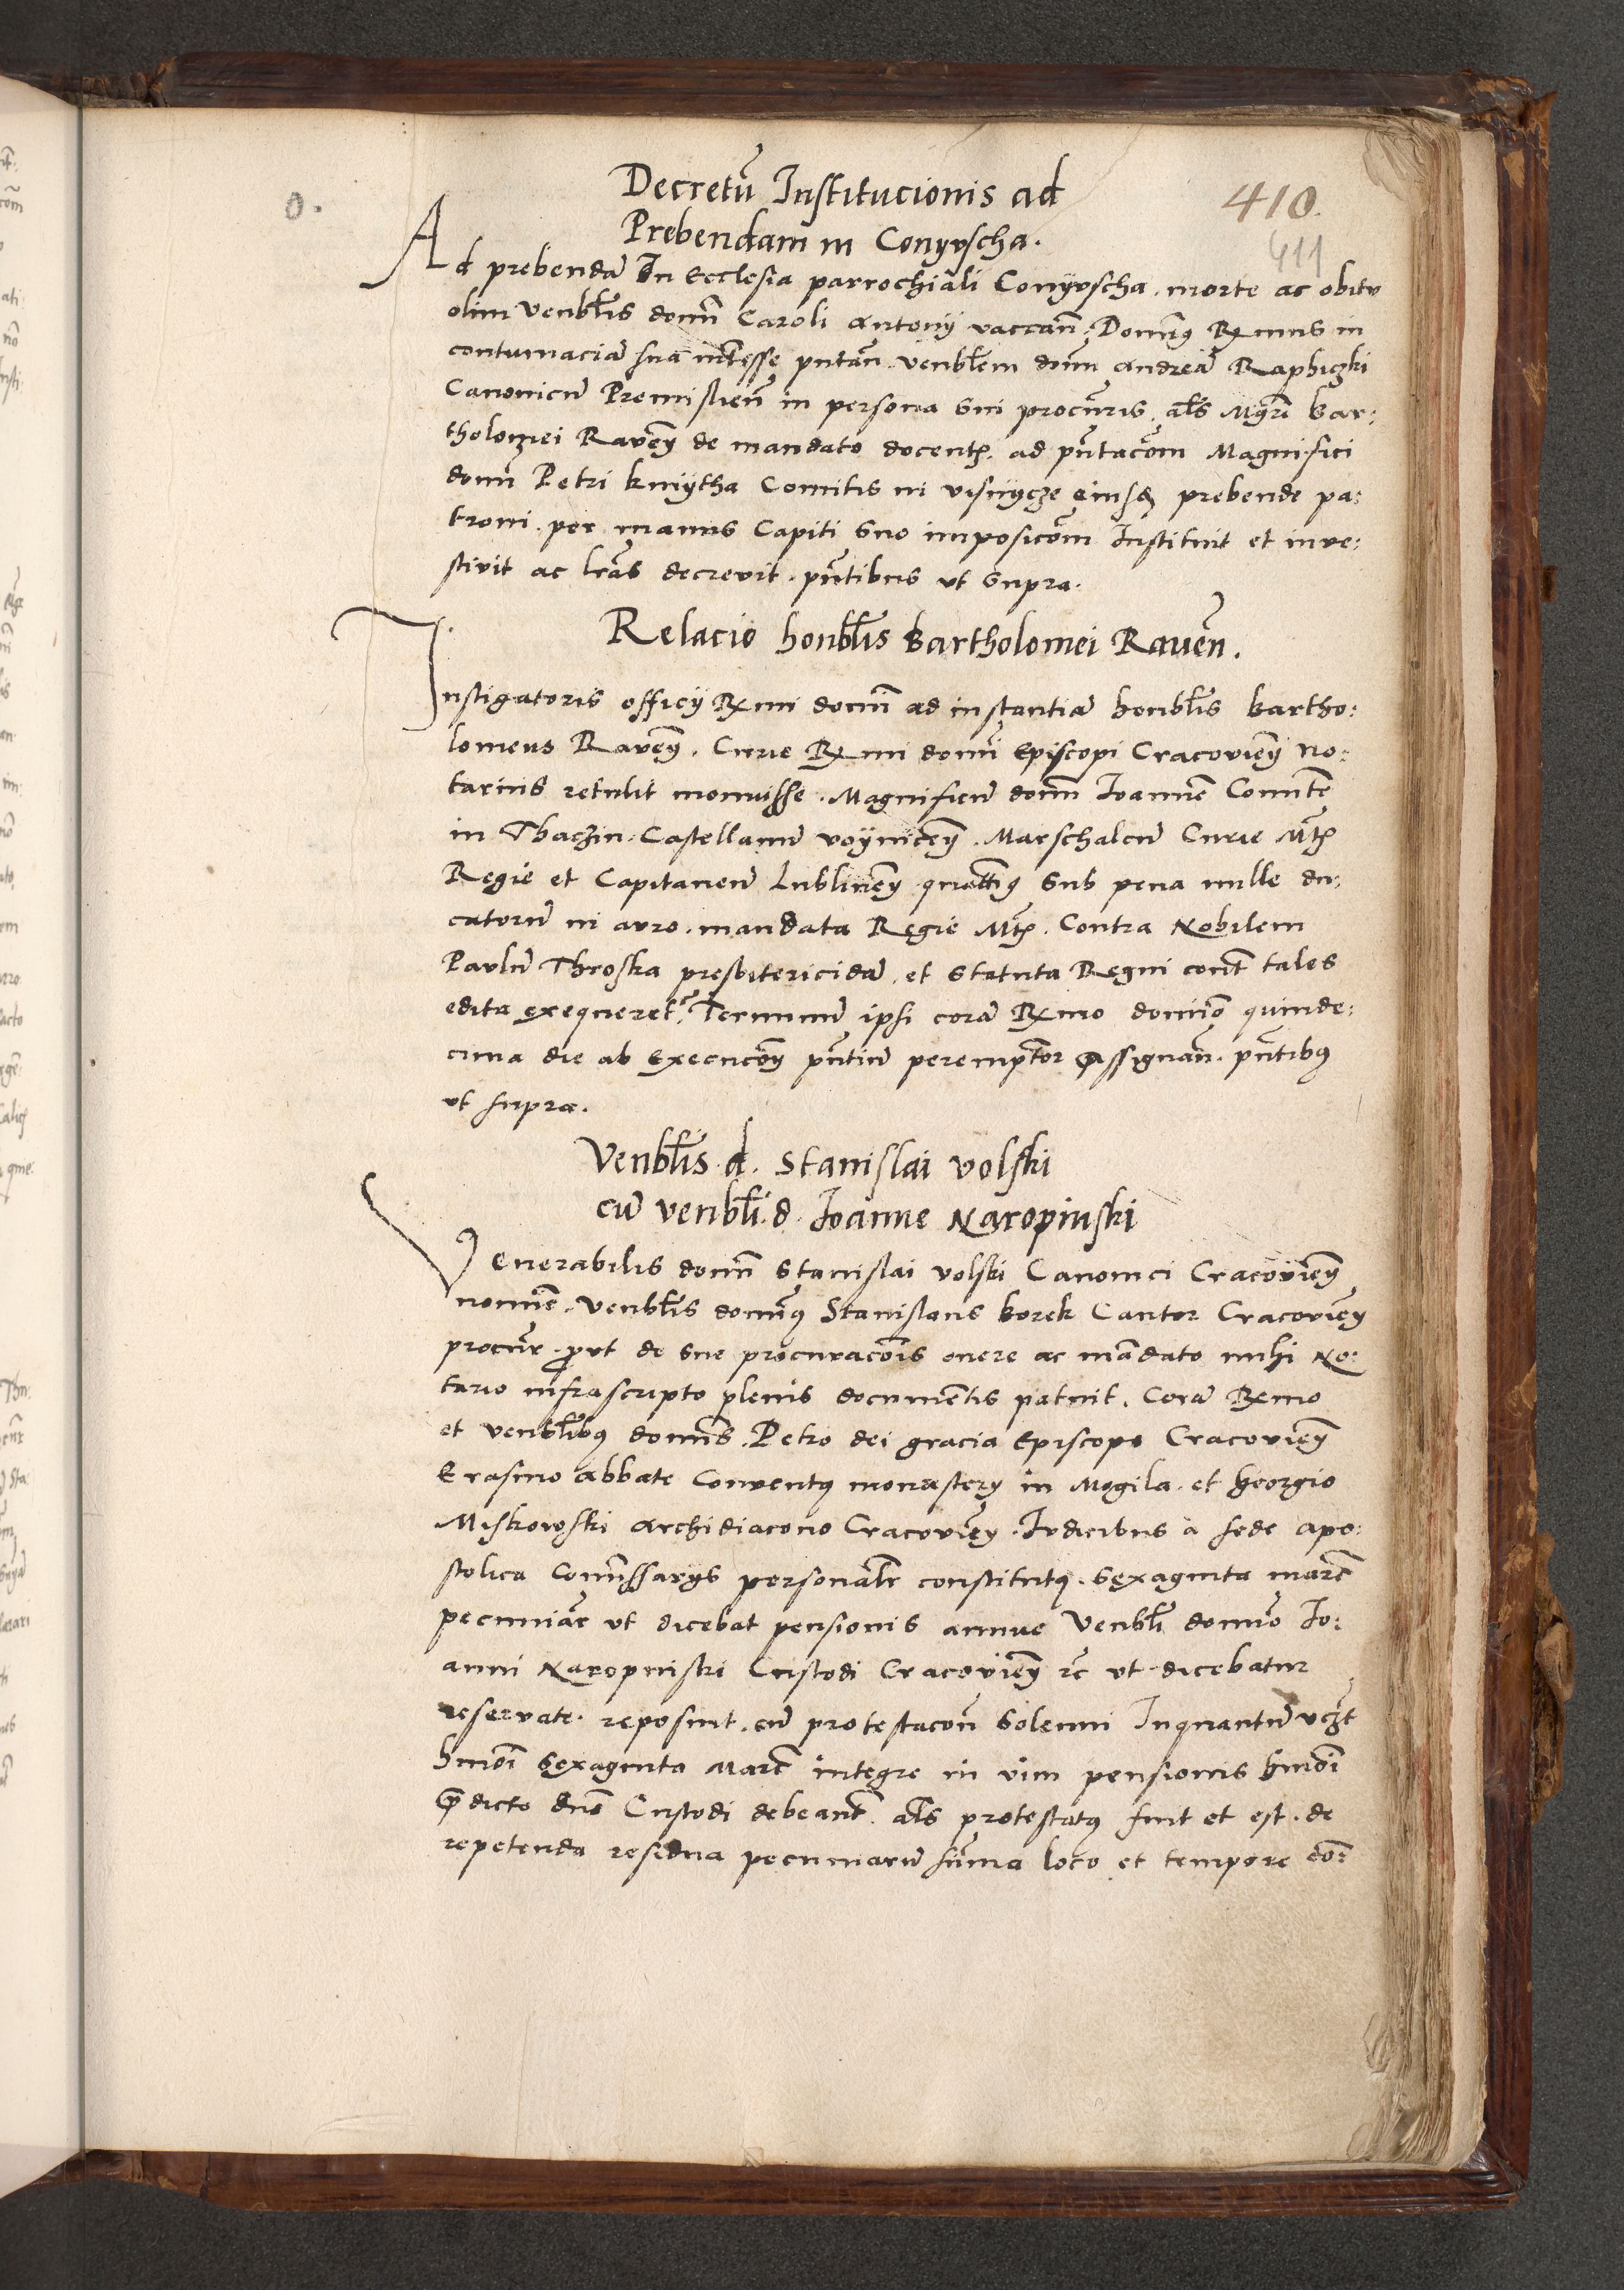 Decretũ Institucionis ad
410.
Prebendam in Conyuscha.
411
0.
Ad prebendã In Ecclesia parrochiali Conyuscha. morte ac obitu
olim Venbĺis domĩ Caroli Antonij vaccañ: Dominꝰ Rxmus in
contumaciã suã interesse pntañ. venbĺem domĩ Andreã Raphiczki
Canonicũ Premislieñ in persona sui procuris, aĺs Mgri Bar:
tholomei Raveñ de mandato docentis. ad pñtacõm Magnifici
domĩ Petri kmytha Comitis in visnycze eiusdem prebende pa:
troni. per manus Capiti suo imposicõm Instituit et inve:
stivit ac lrãs decrevit. pñtibus ut supra.
Relacio honbĺis Bartholomei Raueñ.
Instigatoris officij Rxmi domĩ ad instantiã honbĺis Bartho:
lomeus Raveñ. Curie Rxmi domĩ Episcopi Cracovieñ No:
tarius retulit monuisse. Magnificũ domĩ Ioannẽ Comitẽ
in Thaczin. Castellanũ voyniceñ. Marschalcũ Curie Mtis
Regie et Capitaneũ Lublineñ quatenꝰ sub pena mille du:
catorũ in auro. mandata Regie Mtis. Contra Nobilem
Paulũ Throska presbitericidã. et Statuta Regni conĩ tales
edita exequeret. Terminũ ipsi corã Rxmo domino quinde:
cima die ab execucõñ pñtiũ peremptor assignañ. pñtibꝰ
ut supra.
Venbĺis d. Stanislai volski
cũ venbĺi d. Ioanne Naropinski
Venerabilis domĩ Stanislai volski Canonici Cracovieñ
nomiẽ. Venbĺis dominꝰ Stanislaus borek Cantor Cracovieñ
procũr. prut de sue procuracõis onere ac mãdato mihi No:
tario infrascripto plenis documentis patuit. Corã Rxmo
et venbĺibꝰ dominis. Petro dei gracia Episcopo Cracovieñ
Erasmo abbate Conventꝰ monasterij in Mogila. et Georgio
Miskowski archidiacono Cracovieñ. Iudicibus à sede apo:
stolica Commissarijs personaĺr constitutꝰ. sexaginta marc̃
pecuniãr ut dicebat pensionis annue Venbĺi domino Io:
anni Naropinski Custodi Cracovieñ etc̃ ut dicebatur
reservate. reposuit. cũ protestacõñ solenni Inquantũ vczt
hmõi sexaginta Marc̃ integre in vim pensionis hmõi
predicto dno Custodi debeant. aĺs protestatꝰ fuit et est. de
repetenda residua pecuniarũ sũma loco et tempore cõ: